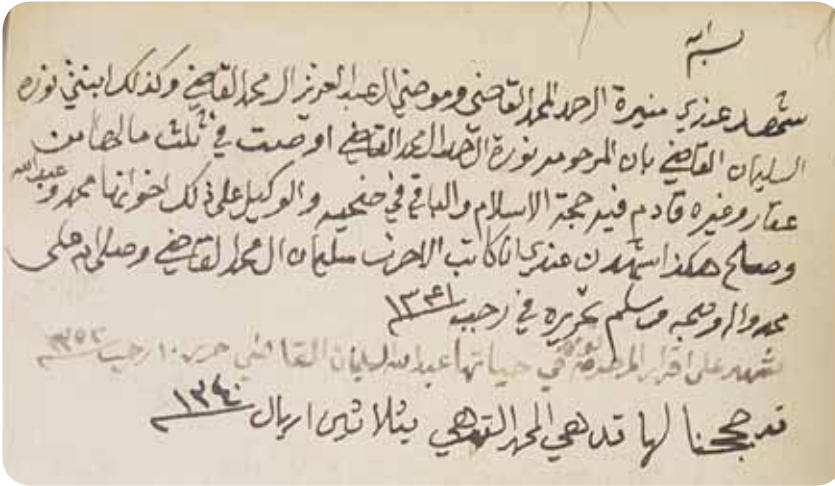 بسم الله
شهد عندي منيرة الحمد المحمد القاضي وموضي العبد العزيز ال محمد القاضي وكذلك ابنتي نوره
السليمان القاضي بان المرحومه نورة الحمد ال محمد القاضي اوصت في ثلث مالها من
عقار وغيره قادم فيه حجة الاسلام والباقي في ضحيه والوكيل على ذلك اخوانها محمد وعبدالله
وصالح هكذا شهدن عندي انا كاتب الاحرف سليمان ال محمد القاضي وصلى الله على
محمد واله وصحبه وسلم تحريره في رجب ١٣٤١
شهد على اقرار المرحومة نورة في حياتها عبدالله السليمان القاضي حرر ١٠ رجب ١٣٥٢
قد حججنا لها المحمد بثلاثين اريال ١٣٤٠